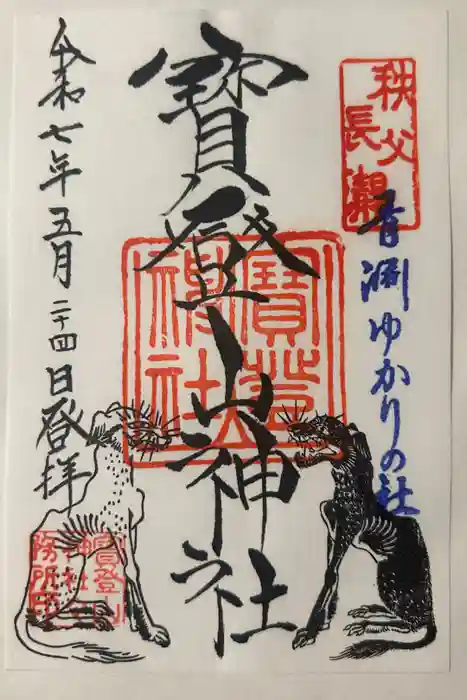 秩父
長瀞
青淵ゆかりの社
寳登山神社
寳登山
神社
令和七年五月二十四日登拝
寳登山
神社社
務所印